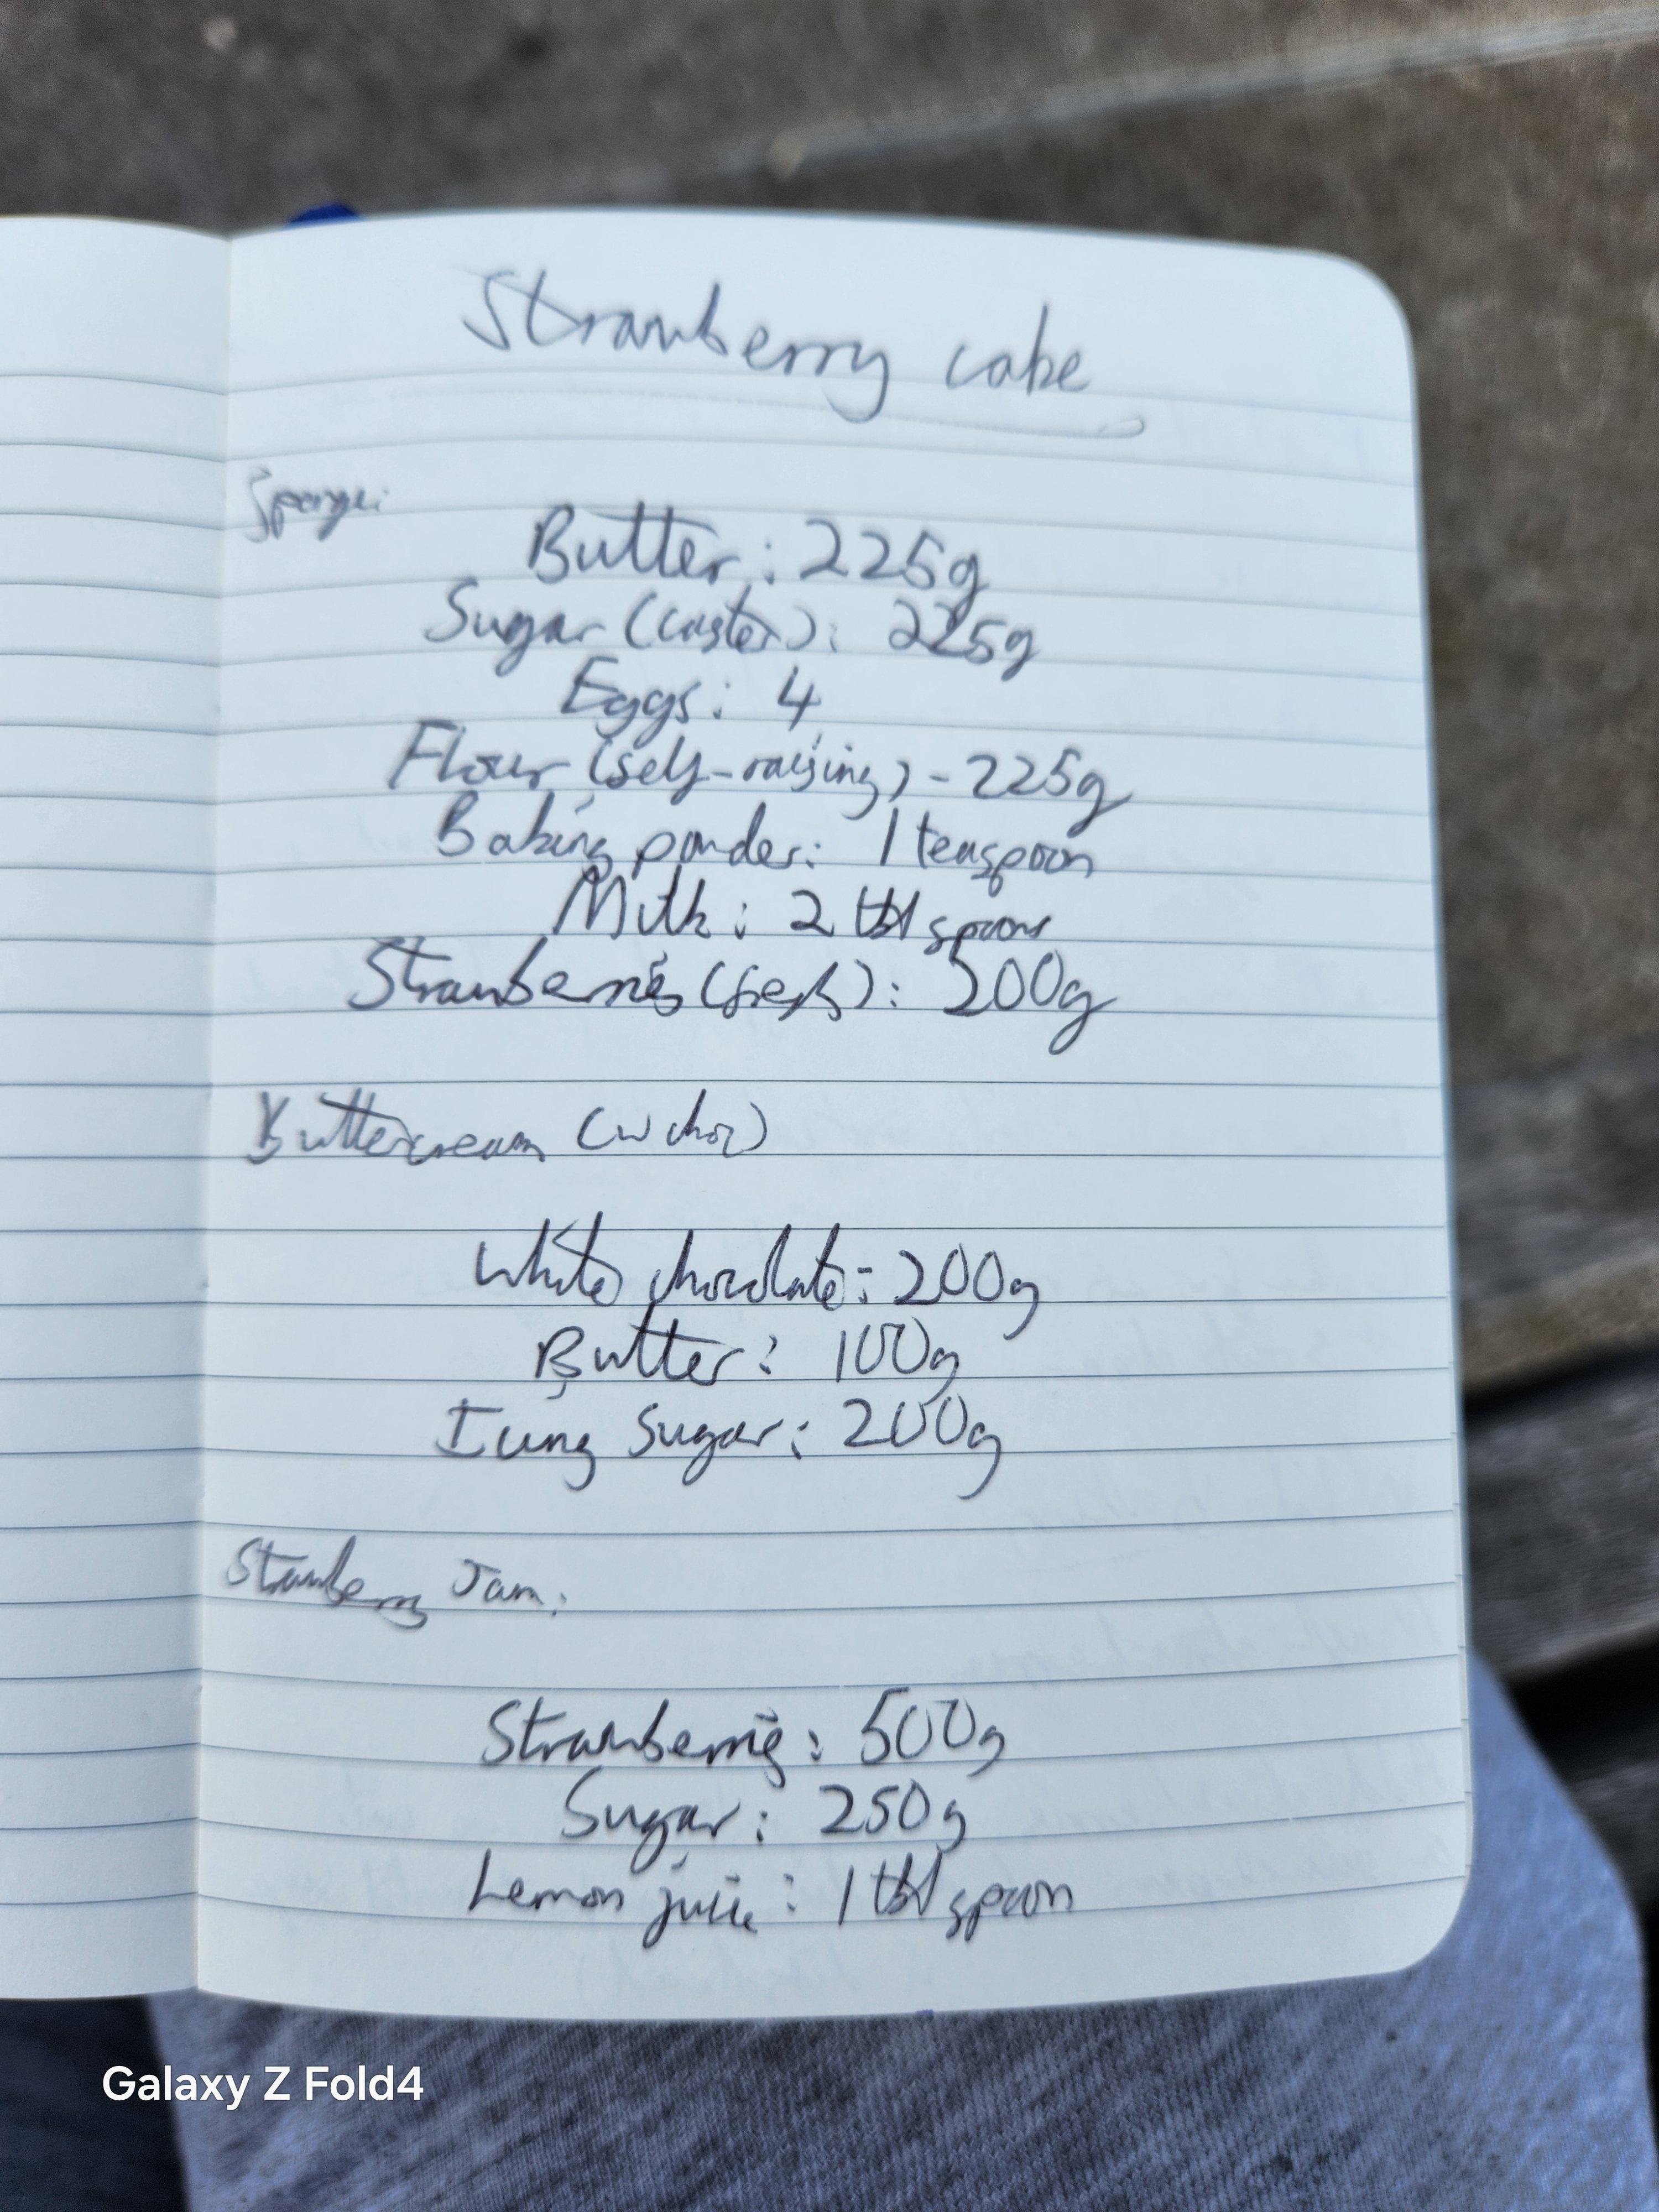 Strawberry cake
Sponge:
Butter: 225g
Sugar (caster): 225g
Eggs: 4
Flour (self-raising) - 225g
Baking powder: 1 teaspoon
Milk: 2 tblspoons
Strawberries (fresh): 200g
Buttercream (w choc)
White chocolate: 200g
Butter: 100g
Icing Sugar: 200g
Strawberry Jam:
Strawberries: 500g
Sugar: 250g
Lemon juice: 1 tblspoon
Galaxy Z Fold4